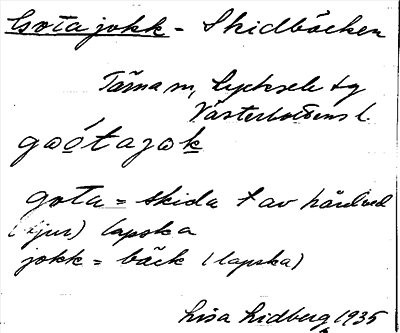 Gotajokk - Skidbäcken
Tärna sn, Lycksele tg
Västerbottens l.
gǫótajok
gota = skida av hårdved
(tjur) lapska
jokk = bäck (lapska)
Lisa Lidberg 1935